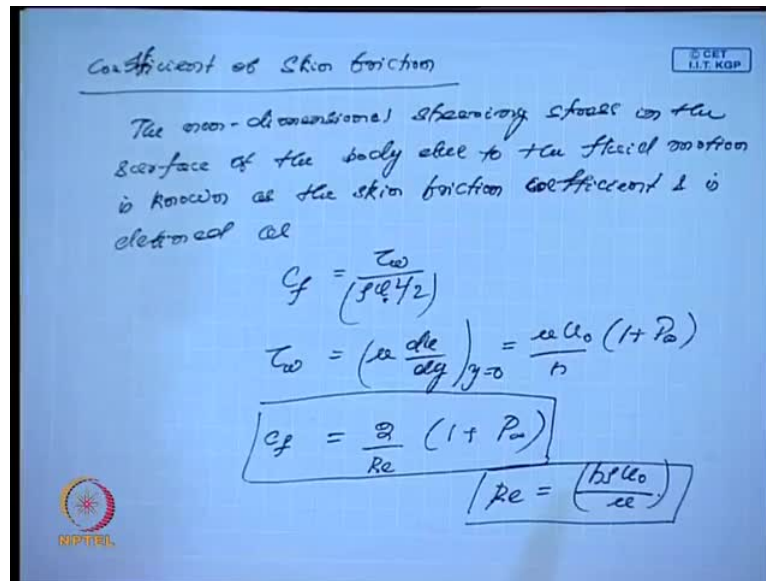 Coefficient of Skin friction
© CET
I.I.T. KGP
The non-dimensional shearing stress in the
surface of the body due to the fluid motion
is known as the skin friction coefficient & is
defined as
C_f = τ_w / (ρu₀²/2)
τ_w = (μ du/dy)_{y=0} = μu₀/h (1 + P_∞)
C_f = 2/Re (1 + P_∞)
Re = (hρu₀/μ)
NPTEL